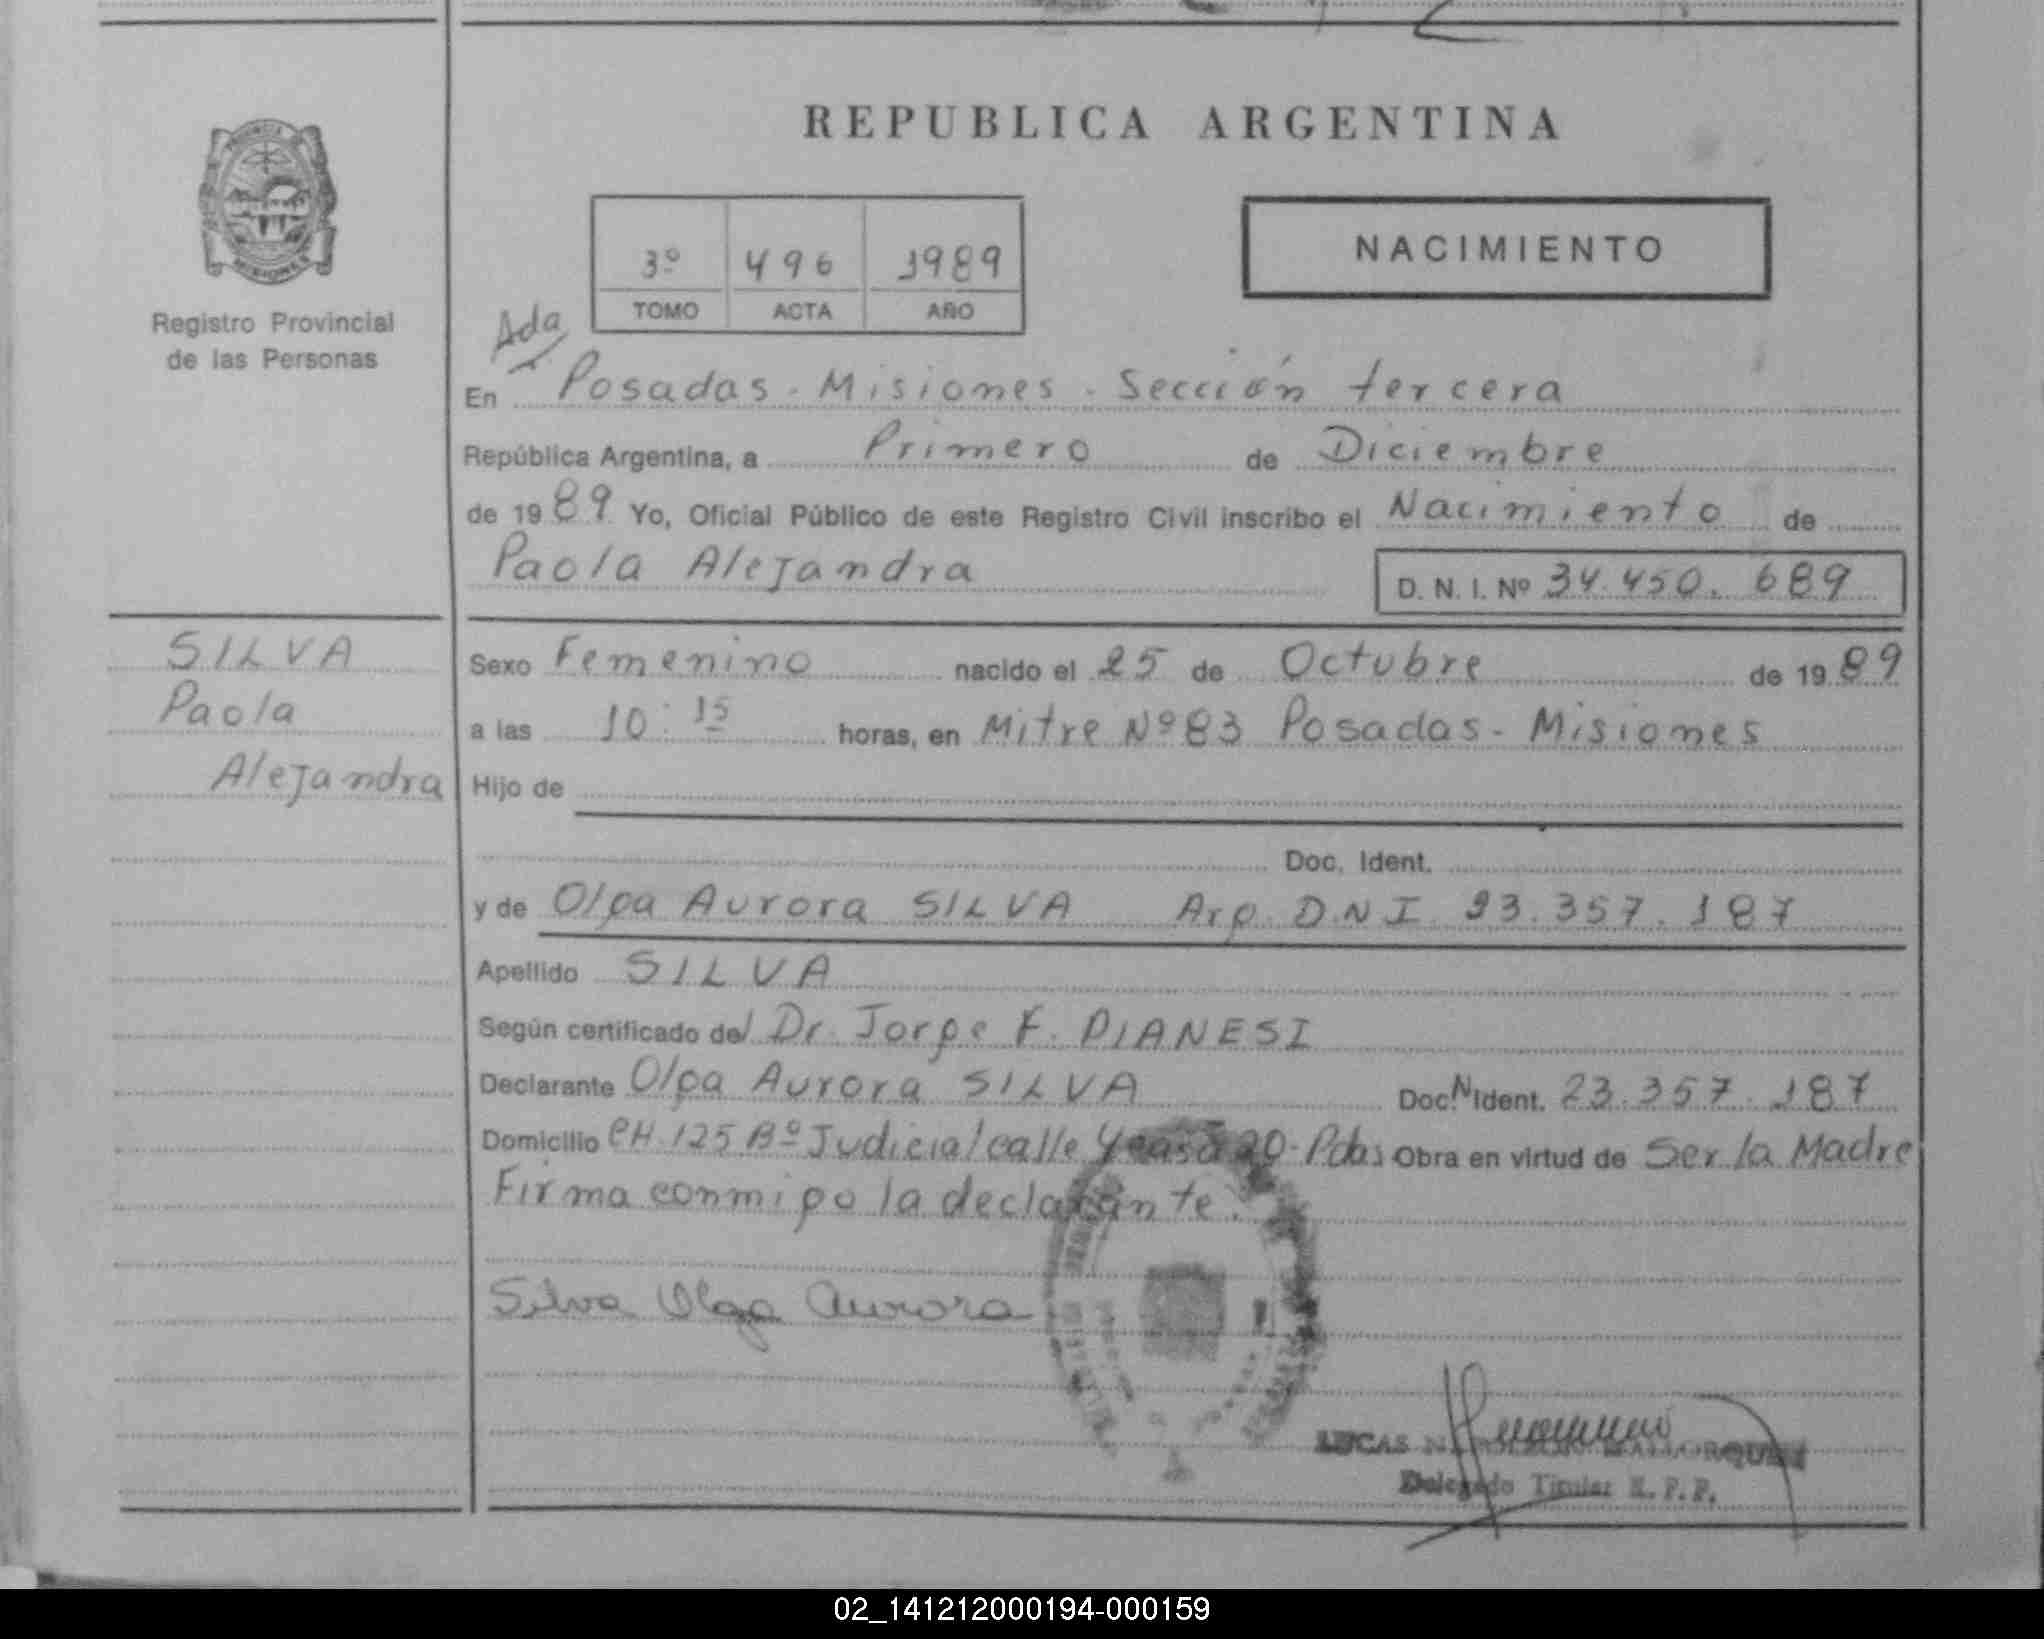 REPUBLICA ARGENTINA
MISIONES
Registro Provincial
de las Personas
3º 496 1989
TOMO ACTA AÑO
NACIMIENTO
Ada
En Posadas - Misiones - Sección tercera
República Argentina, a Primero de Diciembre
de 1989 Yo, Oficial Público de este Registro Civil inscribo el Nacimiento de
Paola Alejandra
D. N. I. Nº 34.450.689
SILVA
Paola
Alejandra
Sexo Femenino nacido el 25 de Octubre de 1989
a las 10:15 horas, en Mitre Nº 83 Posadas - Misiones
Hijo de
Doc. Ident.
y de Olga Aurora SILVA Arg. D N I 23.357.187
Apellido SILVA
Según certificado del Dr. Jorge F. DIANESI
Declarante Olga Aurora SILVA Doc. N Ident. 23.357.187
Domicilio CH. 125 Bº Judicial calle 20 - Pdas Obra en virtud de Ser la Madre
Firma conmigo la declarante.
Silva Olga Aurora
LUCAS
Delegado Titular R. P. P.
02_141212000194-000159